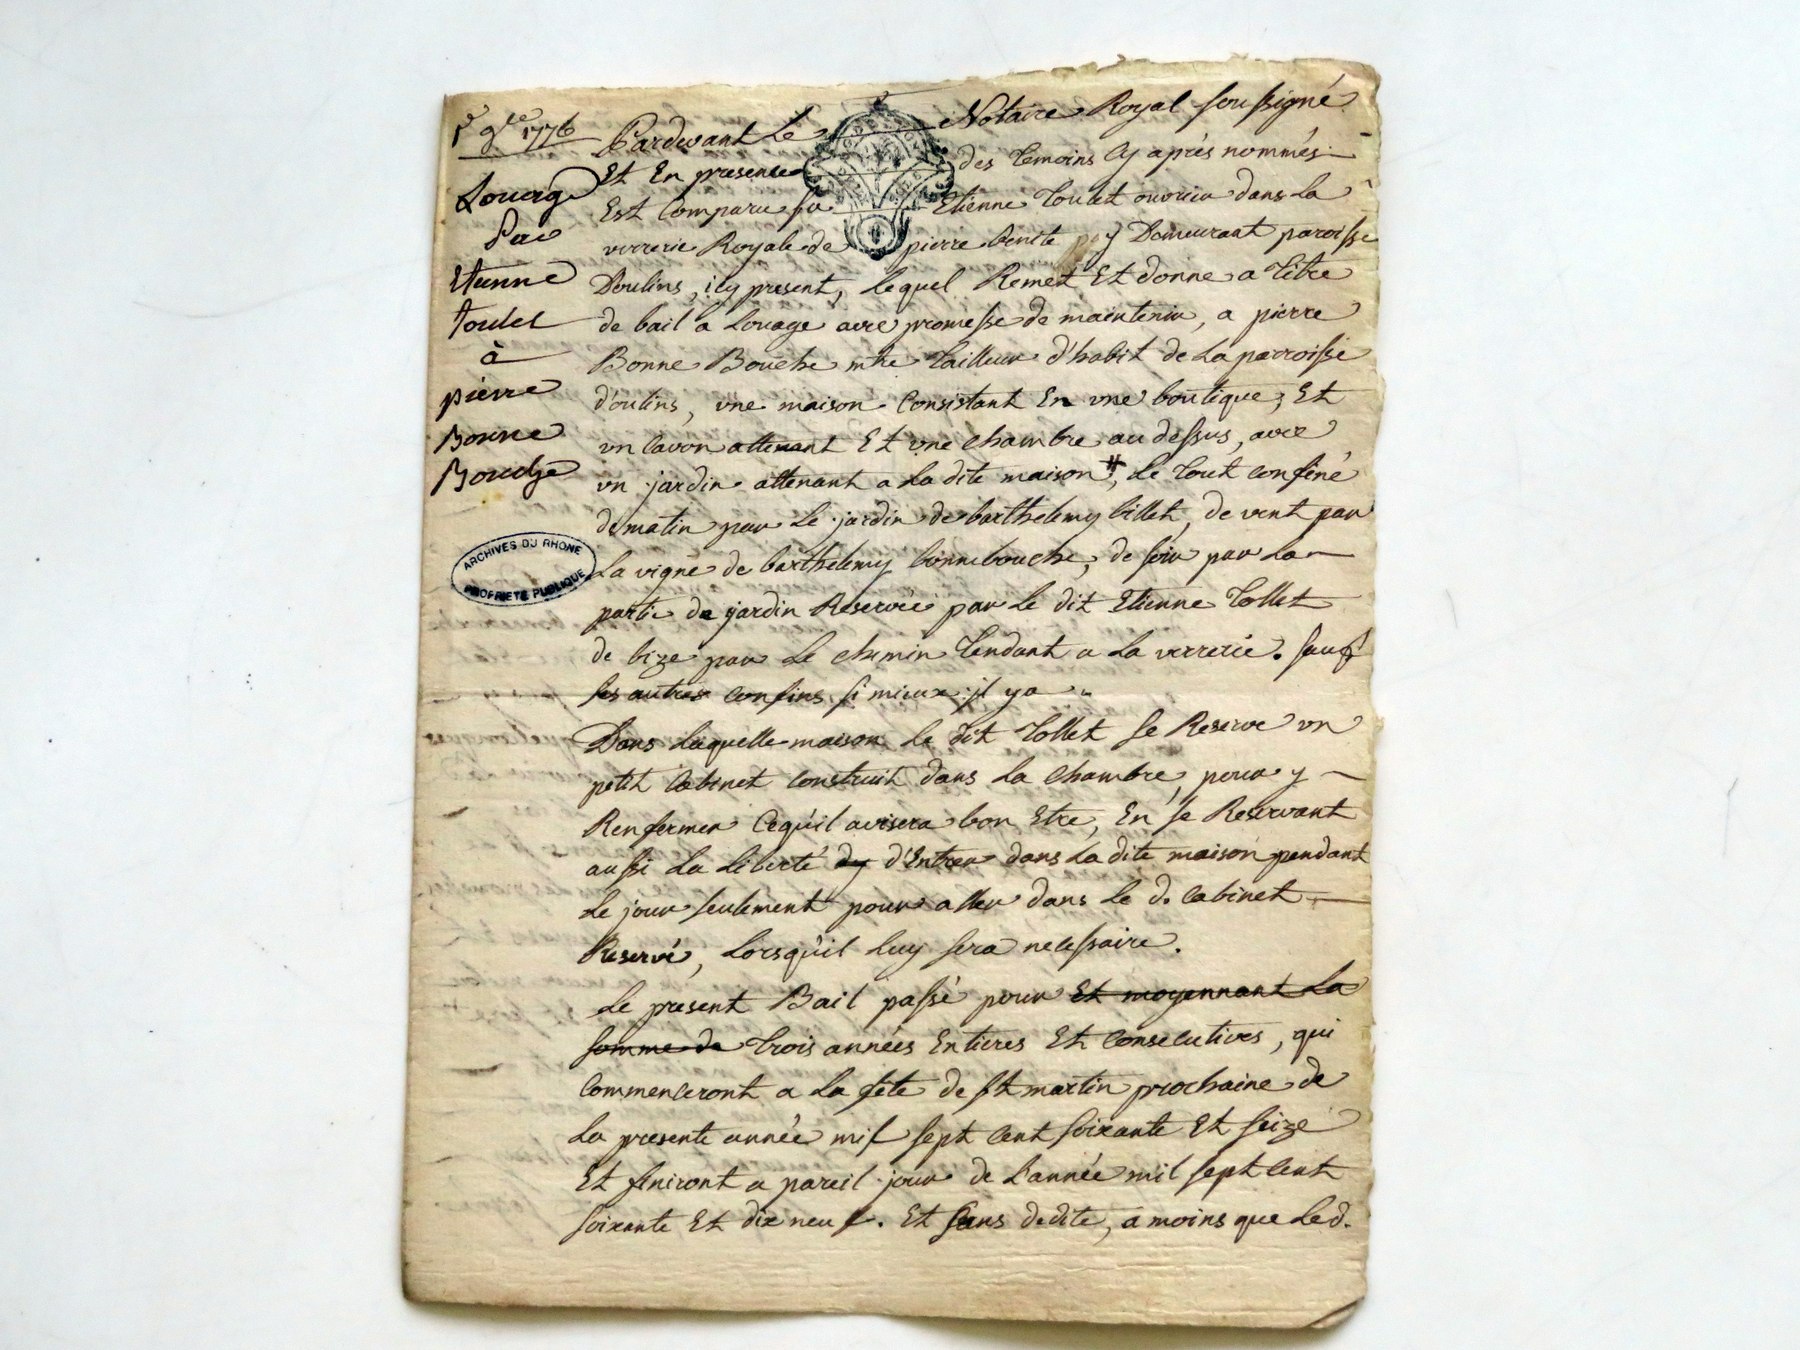 1er 9bre 1776
Louage
Par
Etienne
toulet
à
pierre
Bonne
Bouche
ARCHIVES DU RHONE
PROPRIETE PUBLIQUE
Pardevant Le Notaire Royal soussigné
Et En presence des temoins Cy après nommés
Est Comparu Sr Etienne toulet ouvrier dans La
verrerie Royale de pierre benite y Demeurant paroisse
Doulins, icy present, Lequel Remet Et donne a titre
de bail a Louage avec promesse de maintenir, a pierre
Bonne Bouche mtre tailleur d'habit de La parroisse
d'oulins, vne maison Consistant En vne boutique, Et
vn Cavon attenant Et vne chambre au dessus, avec
vn jardin attenant a La dite maison #, Le tout confiné
de matin par Le jardin de barthelemy billet, de vent par
La vigne de barthelemy bonnebouche, de soir par La
partie de jardin Reservée par Le dit Etienne tollet
de bize par Le chemin tendant a La verrerie. sauf
ses autres confins si mieux il y a
Dans Laquelle maison Le dit tollet se Reserve vn
petit Cabinet Construit dans La Chambre, pour y
Renfermer Ce qu'il avisera bon Etre, En se Reservant
aussi La Liberté dy d'Entrer dans La dite maison pendant
Le jour seulement pour aller dans Le d. Cabinet
Reservé, Lorsqu'il Luy sera necessaire.
Le present Bail passé pour Et moyennant La
somme de trois années Entieres Et Consecutives, qui
Commenceront a La fête de St martin prochaine de
La presente année mil sept Cent soixante Et seize
Et finiront a pareil jour de L'année mil sept Cent
soixante Et dix neuf. Et sans dedite, a moins que Le d.